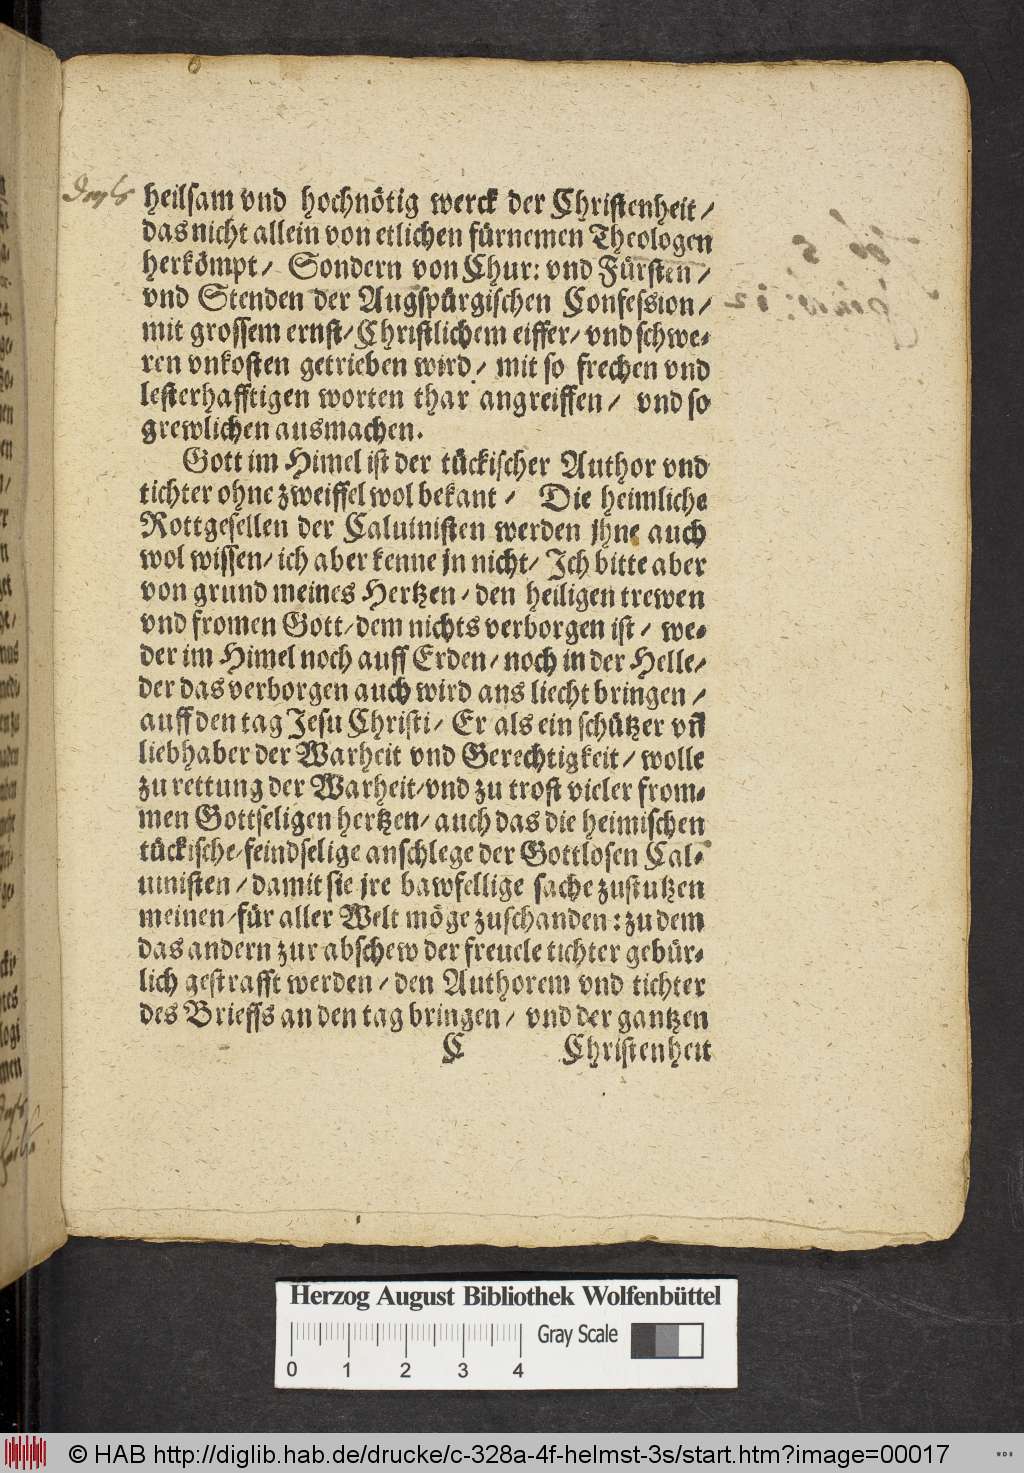 heilsam vnd hochnötig werck der Christenheit /
das nicht allein von etlichen fürnemen Theologen
herkömpt / Sondern von Chur: vnd Fürsten /
vnd Stenden der Augspürgischen Confession /
mit grossem ernst / Christlichem eiffer / vnd schwe-
ren vnkosten getrieben wird / mit so frechen vnd
lesterhafftigen worten thar angreiffen / vnd so
grewlichen ausmachen.
Gott im Himel ist der tückischer Author vnd
tichter ohne zweiffel wol bekant / Die heimliche
Rottgesellen der Caluinisten werden jhne auch
wol wissen / ich aber kenne jn nicht / Ich bitte aber
von grund meines Hertzen / den heiligen trewen
vnd fromen Gott / dem nichts verborgen ist / we-
der im Himel noch auff Erden / noch in der Helle /
der das verborgen auch wird ans liecht bringen /
auff den tag Jesu Christi / Er als ein schützer vñ
liebhaber der Warheit vnd Gerechtigkeit / wolle
zu rettung der Warheit / vnd zu trost vieler from-
men Gottseligen hertzen / auch das die heimischen
tückische / feindselige anschlege der Gottlosen Cal-
uinisten / damit sie jre bawfellige sache zustutzen
meinen / für aller Welt möge zuschanden : zu dem
das andern zur abschew der freuele tichter gebür-
lich gestrafft werden / den Authorem vnd tichter
des Brieffs an den tag bringen / vnd der gantzen
C Christenheit
Herzog August Bibliothek Wolfenbüttel
Gray Scale
0 1 2 3 4
© HAB http://diglib.hab.de/drucke/c-328a-4f-helmst-3s/start.htm?image=00017